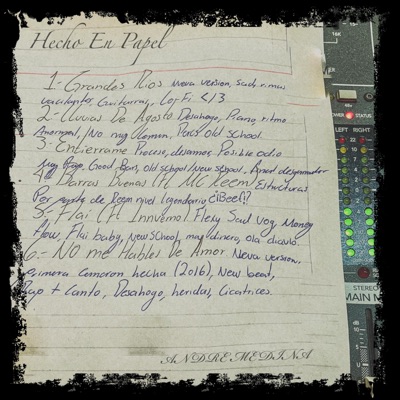 Hecho En Papel
1- Grandes Rios Nueva version, Sad rimas
vacilantes, Guitarras, Lo-Fi </3
2- Lluvias De Agosto Desahogo, Piano, ritmo
Anormal, No muy Comun, Rap old school.
3- Entierrame Proceso, desamor Posible odio
Muy Rapo, Good Bars, old school/new school,
4- Barras Buenas ft. MC Keem Estructuras
Por parte de Keem nivel legendario ¿Beef?
5- Flai (ft Innvemo) Flexy Sad vog, Money
flow, Flai baby, New School, mas dinero, ola
6- NO me Hables De Amor Neva version.
primera hecha (2016), New beat,
Rap + Canto, Desahogo, heridas, Cicatrices.
ANDRE MEDINA
16K
POWER
STATUS
LEFT RIGHT
STEREO
MAIN M